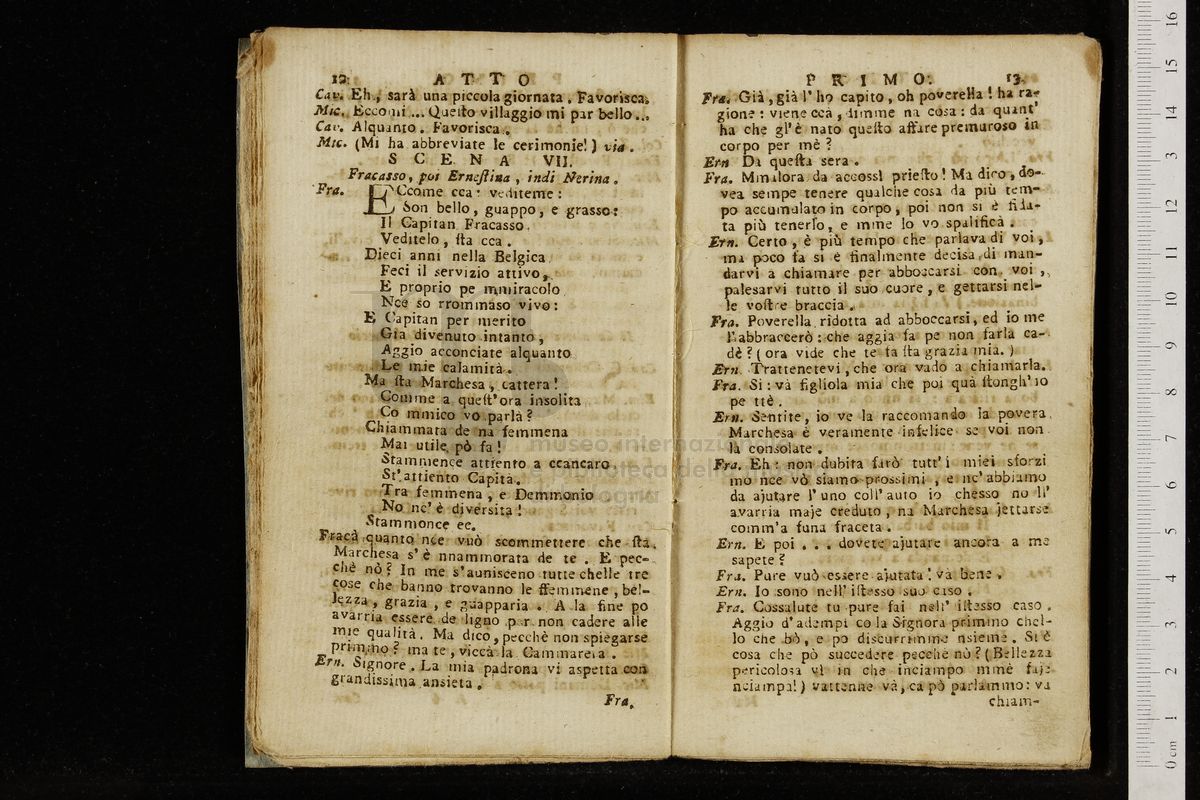 12. ATTO
Cav. Eh, sarà una piccola giornata. Favorisca.
Mic. Eccomi... Questo villaggio mi par bello...
Cav. Alquanto. Favorisca.
Mic. (Mi ha abbreviate le cerimonie!) via.
SCENA VII.
Fracasso, poi Ernestina, indi Nerina.
Fra. ECcome cca: vediteme:
Son bello, guappo, e grasso:
Il Capitan Fracasso
Veditelo, sta cca.
Dieci anni nella Belgica
Feci il servizio attivo,
E proprio pe mmiracolo
Nce so rrommaso vivo:
E Capitan per merito
Già divenuto intanto,
Aggio acconciate alquanto
Le mie calamità.
Ma sta Marchesa, cattera!
Comme a quest'ora insolita
Co mmico vo parlà?
Chiammata de na femmena
Mai utile pò fa!
Stammence attiento a ccancaro,
St'attiento Capità.
Tra femmena, e Demmonio
No nc'è diversità!
Stammonce ec.
Fracà quanto nce vuò scommettere che sta
Marchesa s'è nnammorata de te. E pec-
chè nò? In me s'aunisceno tutte chelle tre
cose che banno trovanno le ffemmene, bel-
lezza, grazia, e guapparia. A la fine po
avarria essere de ligno per non cadere alle
mie qualità. Ma dico, pecchè non spiegarse
primmo? ma te, viccà la Cammarera.
Ern. Signore. La mia padrona vi aspetta con
grandissima ansietà.
Fra.
PRIMO. 13.
Fra. Già, già l'ho capito, oh poverella! ha ra-
gione: viene cca, dimme na cosa: da quant'
ha che gl'è nato questo affare premuroso in
corpo per mè?
Ern Da questa sera.
Fra. Mmalora da accossì priesto! Ma dico, do-
vea sempe tenere qualche cosa da più tem-
po accumulato in corpo, poi non si è fida-
ta più tenerlo, e mme lo vo spalificà.
Ern. Certo, è più tempo che parlava di voi,
ma poco fa si è finalmente decisa di man-
darvi a chiamare per abboccarsi con voi,
palesarvi tutto il suo cuore, e gettarsi nel-
le vostre braccia.
Fra. Poverella ridotta ad abboccarsi, ed io me
l'abbraccerò: che aggia fa pe non farla ca-
dè? (ora vide che te fa sta grazia mia.)
Ern. Trattenetevi, che ora vado a chiamarla.
Fra. Si: và figliola mia che poi quà stongh'io
pe ttè.
Ern. Sentite, io ve la raccomando la povera
Marchesa è veramente infelice se voi non
la consolate.
Fra. Eh: non dubita farò tutt'i miei sforzi
mo nce vò siamo prossimi, e nc'abbiamo
da ajutare l'uno coll'auto io chesso no ll'
avarria maje creduto, na Marchesa jettarse
comm'a funa fraceta.
Ern. E poi... dovete ajutare ancora a me
sapete?
Fra. Pure vuò essere ajutata! và bene.
Ern. Io sono nell'istesso suo caso.
Fra. Cossalute tu pure fai nell'istesso caso.
Aggio d'adempi co la Signora primmo chel-
lo che bò, e po discurrimmo nsieme. Si è
cosa che pò succedere pecchè nò? (Bellezza
pericolosa vì in che inciampo mmè faje
nciampà!) vattenne và, ca pò parlammo: va
chiam-
museo internazionale
e biblioteca della musica